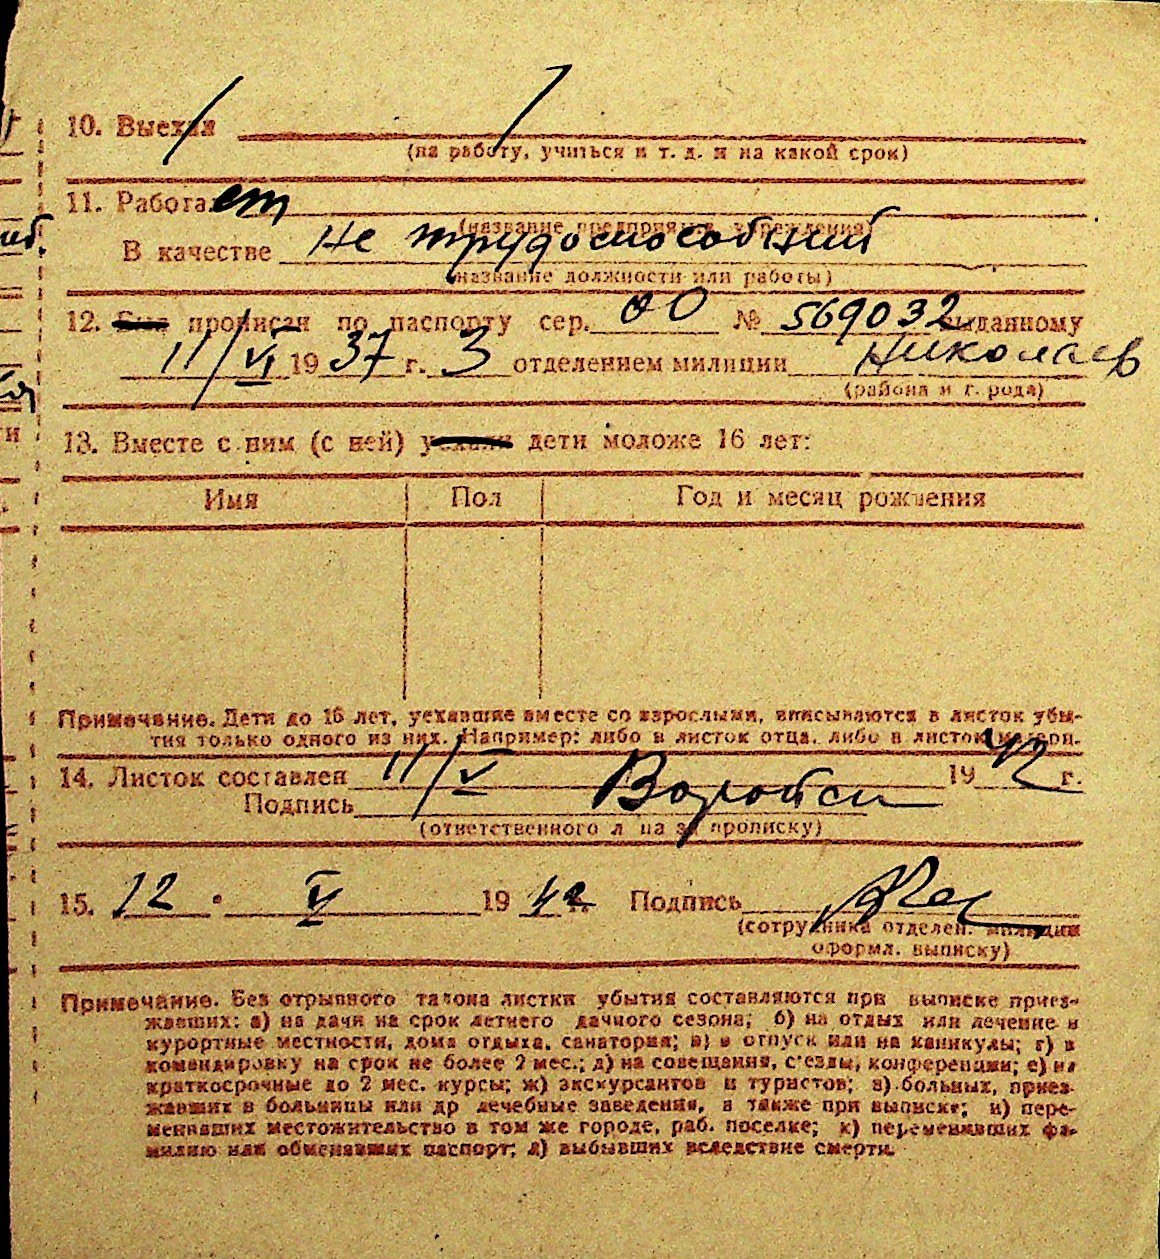 10. Выехал
(на работу, учиться и т. д. и на какой срок)
11. Работает
(название предприятия, учреждения)
В качестве не трудоспособный
(название должности или работы)
12. Был прописан по паспорту сер. № 569032 выданному
11/VI 1937 г. 3 отделением милиции Николаев
(района и города)
13. Вместе с ним (с ней) уехали дети моложе 16 лет:
Имя Пол Год и месяц рождения
Примечание. Дети до 16 лет, уехавшие вместе со взрослыми, вписываются в листок убы-
тия только одного из них. Например: либо в листок отца, либо в листок матери.
14. Листок составлен 11/V 1942 г.
Подпись
(ответственного лица за прописку)
15. 12. V 1942 г. Подпись
(сотрудника отделен. милиции
оформл. выписку)
Примечание. Без отрывного талона листки убытия составляются при выписке приез-
жавших: а) на дачи на срок летнего дачного сезона; б) на отдых или лечение в
курортные местности, дома отдыха, санатория; в) в отпуск или на каникулы; г) в
командировку на срок не более 2 мес.; д) на совещания, с'езды, конференции; е) на
краткосрочные до 2 мес. курсы; ж) экскурсантов и туристов; з) больных, приез-
жавших в больницы или др лечебные заведения, а также при выписке; и) пере-
менивших местожительство в том же городе, раб. поселке; к) переменивших фа-
милию или обменявших паспорт; л) выбывших вследствие смерти.